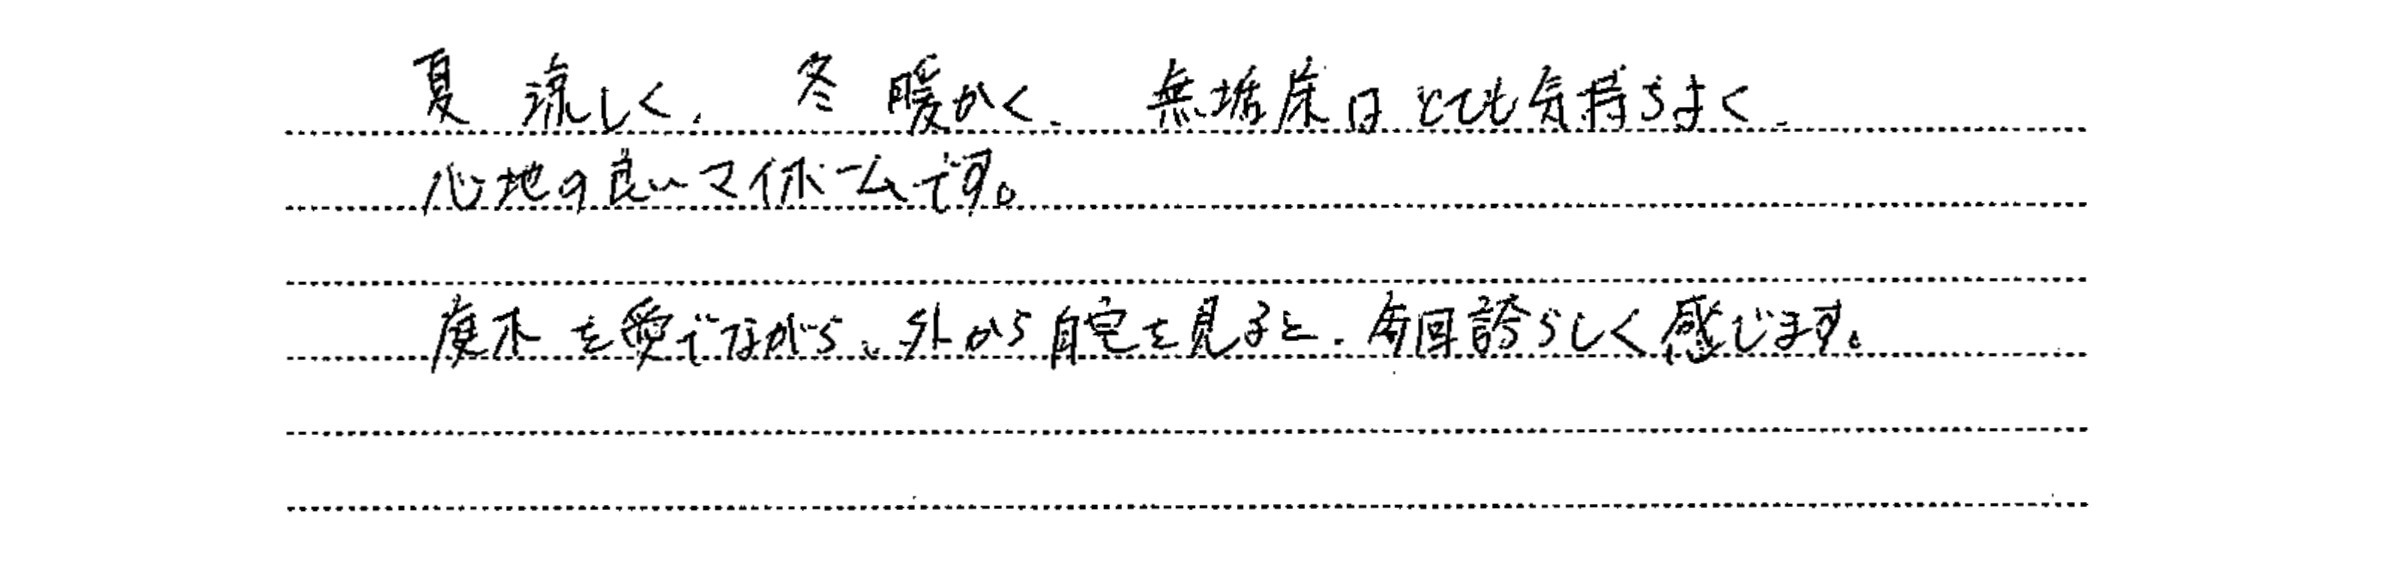 夏 涼しく、 冬 暖かく、 無垢床は とても気持ちよく、
心地の良いマイホームです。
庭木を愛でながら、外から自宅を見ると、毎回誇らしく感じます。